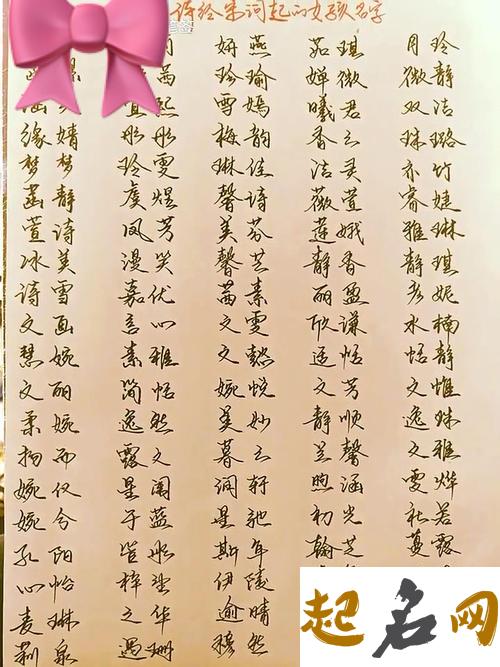 诗经宋词起的女孩名字
妍燕 茹琪 月玲
玲瑜 婵微 微静
雪嫣 曦君 双洁
缘婧 彤彤 梅韵 香云 珠璐
梦梦 玲雯 琳佳 洁灵 亦竹
菡静 虞煜 馨诗 薇萱 睿婕
萱诗 凤芳 美芬 莲娥 雅琳
冰美 漫笑 馨芸 静香 静琪
诗雪 嘉优 茜素 丽盈
文画 言心 文雯 欣谦 水楠
慧婉 素雅 文懿 廷恬 恬静
文丽 简恬 婉悦 文芳 文惟
柔婉 逸然 美妙 静顺 逸姝
霞文 暮云 兰馨 文雅
婉仪 星阑 润轩 煦涵 雯烨
婉兮 子蓝 星驰 初光 礼若
孔阳 皆彤 斯年 翰芝 蔓露
心怡 伊陵
麦琳 之华 逾晴
莉泉 遇珊 穆然
起名网